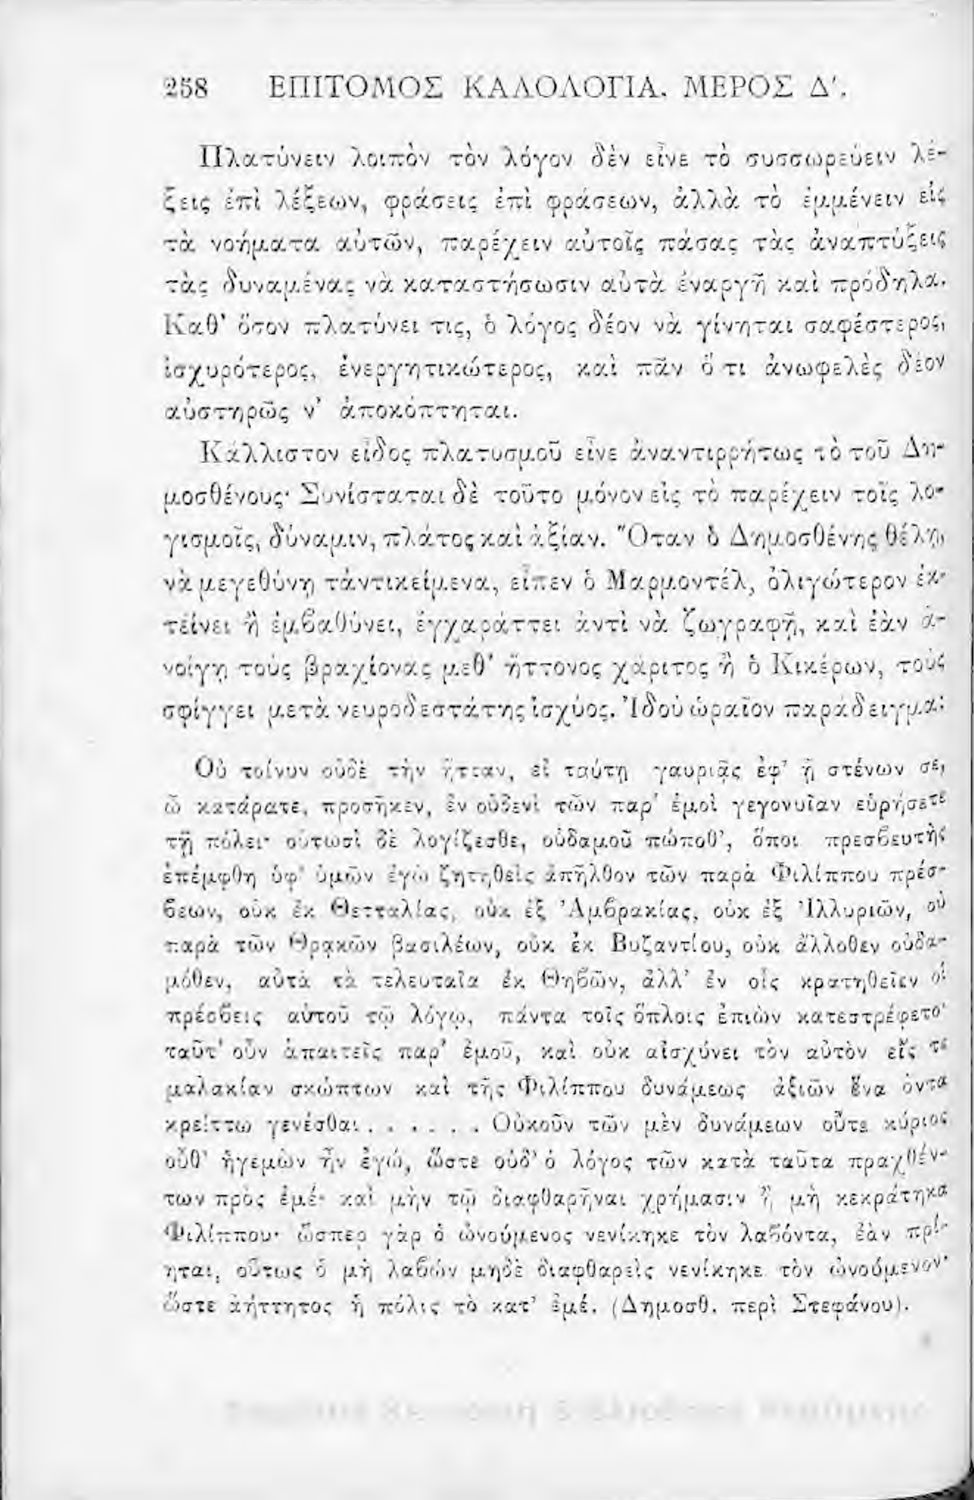 258 ΕΠΙΤΟΜΟΣ ΚΑΛΟΛΟΓΙΑ. ΜΕΡΟΣ Δ'.
Πλατύνειν λοιπὸν τὸν λόγον δὲν εἶνε τὸ συσσωρεύειν λέ-
ξεις ἐπὶ λέξεων, φράσεις ἐπὶ φράσεων, ἀλλὰ τὸ ἐμμένειν εἰς
τὰ νοήματα αὐτῶν, παρέχειν αὐτοῖς πάσας τὰς ἀναπτύξεις
τὰς δυναμένας νὰ καταστήσωσιν αὐτὰ ἐναργῆ καὶ πρόδηλα.
Καθ' ὅσον πλατύνει τις, ὁ λόγος δέον νὰ γίνηται σαφέστερος,
ἰσχυρότερος, ἐνεργητικώτερος, καὶ πᾶν ὅ τι ἀνωφελὲς δέον
αὐστηρῶς ν' ἀποκόπτηται.
Κάλλιστον εἶδος πλατυσμοῦ εἶνε ἀναντιρρήτως τὸ τοῦ Δη-
μοσθένους· Συνίσταται δὲ τοῦτο μόνον εἰς τὸ παρέχειν τοῖς λο-
γισμοῖς, δύναμιν, πλάτος καὶ ἀξίαν. Ὅταν ὁ Δημοσθένης θέλῃ,
νὰ μεγεθύνῃ τἀντικείμενα, εἶπεν ὁ Μαρμοντέλ, ὀλιγώτερον ἐκ-
τείνει ἢ ἐμβαθύνει, ἐγχαράττει ἀντὶ νὰ ζωγραφῇ, καὶ ἐὰν ἀ-
νοίγῃ τοὺς βραχίονας μεθ' ἥττονος χάριτος ἢ ὁ Κικέρων, τοὺς
σφίγγει μετὰ νευροδεστάτης ἰσχύος. Ἰδοὺ ὡραῖον παράδειγμα:
Οὐ τοίνυν οὐδὲ τὴν ἧτταν, εἰ ταύτῃ γαυριᾷς ἐφ' ᾗ στένων σε,
ὦ κατάρατε, προσῆκεν, ἐν οὐδενὶ τῶν παρ' ἐμοὶ γεγονυῖαν εὑρήσετε
τῇ πόλει· οὑτωσὶ δὲ λογίζεσθε, οὐδαμοῦ πώποθ', ὅποι πρεσβευτὴς
ἐπέμφθη ὑφ' ὑμῶν ἐγὼ ζητηθεὶς ἀπῆλθον τῶν παρὰ Φιλίππου πρέσ-
βεων, οὐκ ἐκ Θετταλίας, οὐκ ἐξ Ἀμβρακίας, οὐκ ἐξ Ἰλλυριῶν, οὐ
παρὰ τῶν Θρᾳκῶν βασιλέων, οὐκ ἐκ Βυζαντίου, οὐκ ἄλλοθεν οὐδα-
μόθεν, αὐτὰ τὰ τελευταῖα ἐκ Θηβῶν, ἀλλ' ἐν οἷς κρατηθεῖεν οἱ
πρέσβεις αὐτοῦ τῷ λόγῳ, πάντα τοῖς ὅπλοις ἐπιὼν κατεστρέφετο
ταῦτ' οὖν ἀπαιτεῖς παρ' ἐμοῦ, καὶ οὐκ αἰσχύνει τὸν αὐτὸν εἴς τε
μαλακίαν σκώπτων καὶ τῆς Φιλίππου δυνάμεως ἀξιῶν ἕνα ὄντα
κρείττω γενέσθαι . . . . . . Οὐκοῦν τῶν μὲν δυνάμεων οὔτε κύριος
οὔθ' ἡγεμὼν ἦν ἐγώ, ὥστε οὐδ' ὁ λόγος τῶν κατὰ ταῦτα πραχθέν-
των πρὸς ἐμέ· καὶ μὴν τῷ διαφθαρῆναι χρήμασιν ἢ μὴ κεκράτηκα
Φιλίππου· ὥσπερ γὰρ ὁ ὠνούμενος νενίκηκε τὸν λαβόντα, ἐὰν πρί-
ηται, οὕτως ὁ μὴ λαβὼν μηδὲ διαφθαρεὶς νενίκηκε τὸν ὠνούμενον·
ὥστε ἀήττητος ἡ πόλις τὸ κατ' ἐμέ. (Δημοσθ. περὶ Στεφάνου).